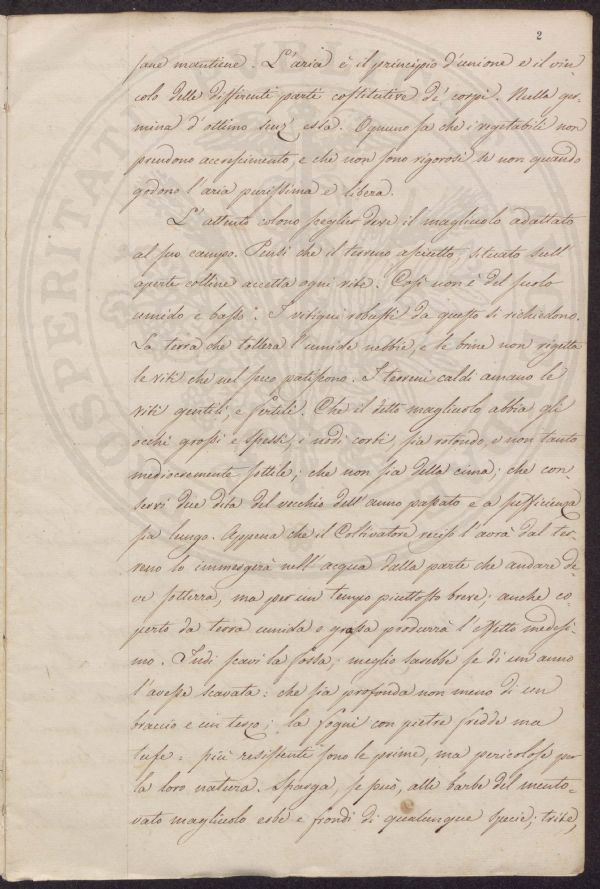 2
sane mantiene. L'aria è il principio d'unione e il vin-
colo delle differenti parti costitutive de' corpi. Nulla ger-
mina d'ottimo senz' essa. Ognuno sa che i vegetabili non
prendono accrescimento, e che non sono rigorosi se non quando
godono l'aria purissima e libera.
L'attento colono sceglier deve il magliuolo adattato
al suo campo. Pensi che il terreno asciutto, situato sull'
aperte colline accetta ogni vite. Così non è del suolo
umido e basso. I vitigni robusti da questo si richiedono.
La terra che tollera l'umide nebbie, e le brine non rigetta
le viti che nel secco patiscono. I terreni caldi amano le
viti gentili, e sottili. Che il detto magliuolo abbia gli
occhi grossi e spessi, i nodi corti, sia rotondo, e non tanto
mediocremente sottile; che non sia della cima; che con-
servi due dita del vecchio dell'anno passato e a sufficienza
sia lungo. Appena che il Coltivatore reciso l'avrà dal ter-
reno lo immergerà nell'acqua dalla parte che andare de-
ve sotterra, ma per un tempo piuttosto breve; anche co-
perto da terra umida e grassa produrrà l'effetto medesi-
mo. Indi scavi la fossa; meglio sarebbe se di un anno
l'avesse scavata: che sia profonda non meno di un
braccio e un terzo; la fogni con pietre fredde ma
tufe: più resistente sono le prime, ma pericolose per
la loro natura. Sparga, se può, alle barbe del mento-
vato magliuolo erbe e frondi di qualunque specie; trite,